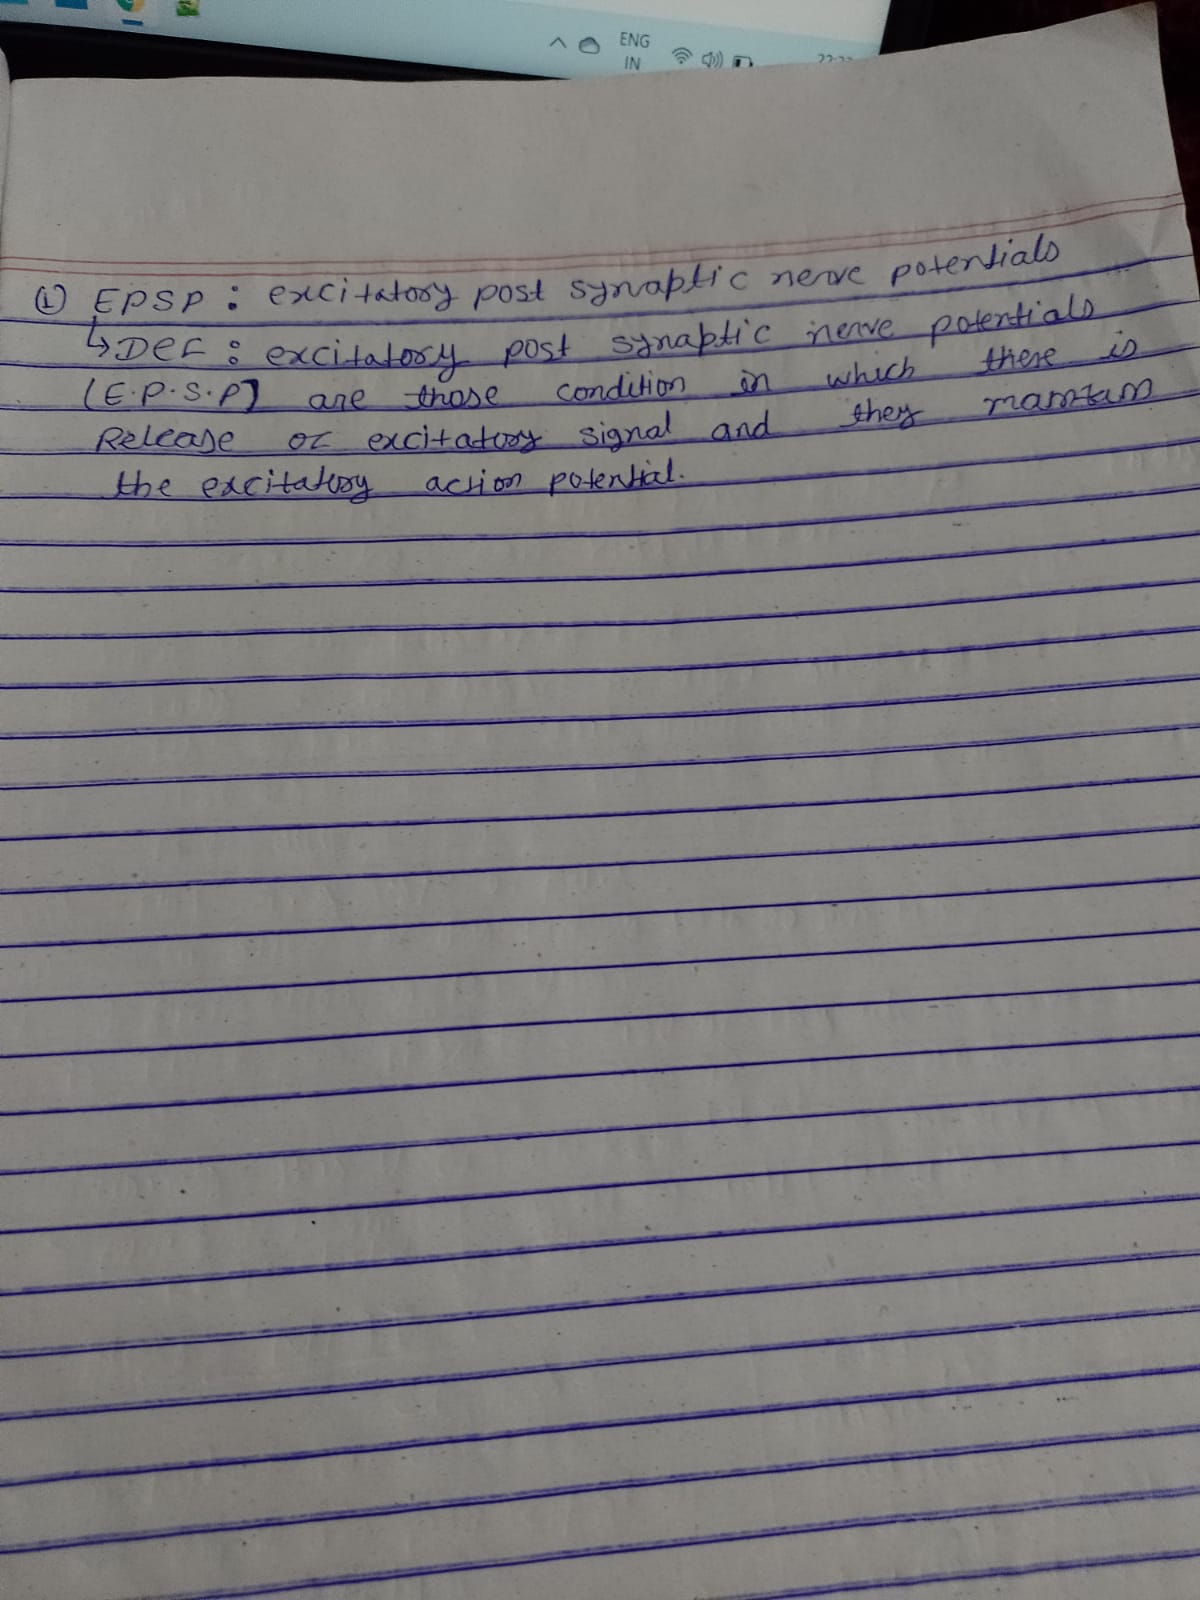 ENG
IN
① EPSP : excitatory post synaptic nerve potentials
↳ Def : excitatory post synaptic nerve potentials
(E.P.S.P] are those condition in which there is
Release of excitatory signal and they maintain
the excitatory action potential.